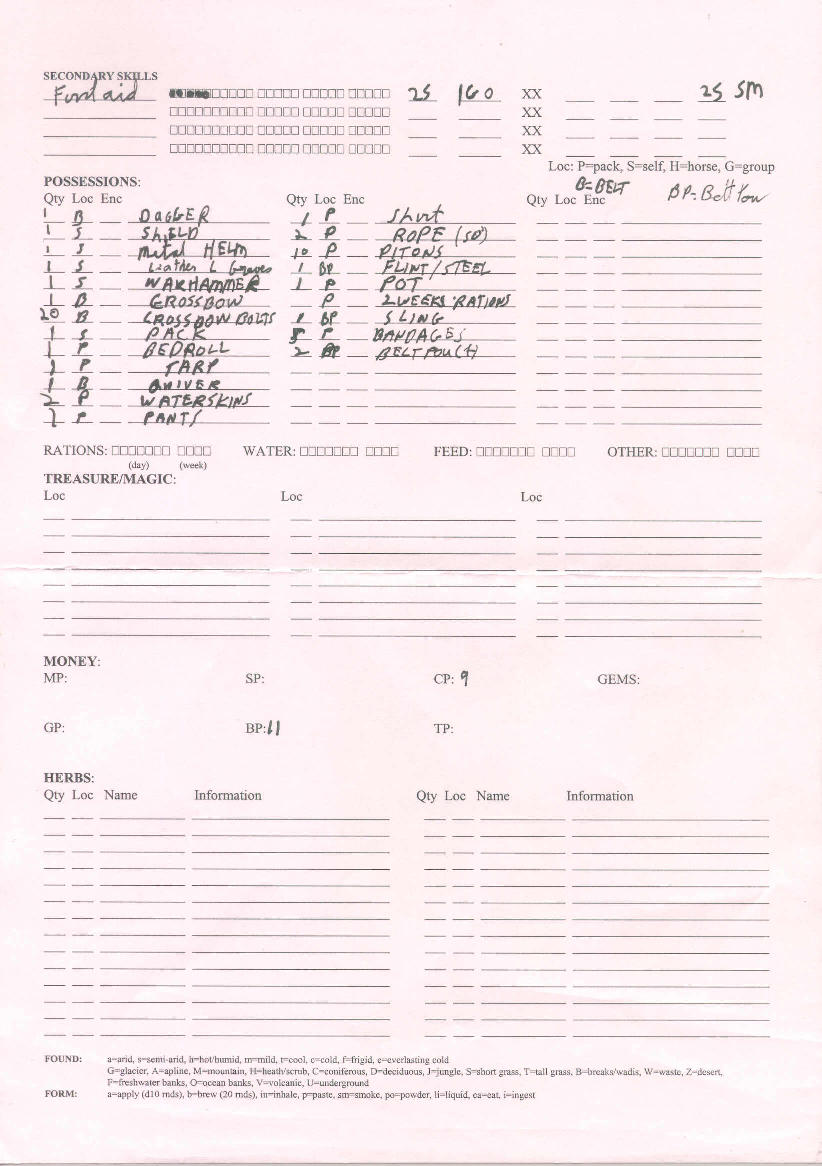 SECONDARY SKILLS
First aid □□□□□ □□□□□ □□□□□ □□□□□ 25 XX 25 SM
□□□□□□□□□□ □□□□□ □□□□□ XX
□□□□□□□□□□ □□□□□ □□□□□ XX
□□□□□□□□□□ □□□□□ □□□□□ XX
Loc: P=pack, S=self, H=horse, G=group
POSSESSIONS: B=BELT BP=Belt
Qty Loc Enc Qty Loc Enc Qty Loc Enc
1 B DAGGER 1 P Shirt
1 S SHIELD 2 P ROPE (50')
1 S Metal HELM 10 P PITONS
1 S Leather L Greaves 1 BP FLINT/STEEL
1 S WARHAMMER 1 P POT
1 B CROSSBOW P 2 WEEKS RATIONS
20 B CROSSBOW BOLTS 1 BP SLING
1 S PACK 5 P BANDAGES
1 P BEDROLL 2 BP BELT POUCH
1 P TARP
1 B QUIVER
2 P WATERSKINS
1 P PANTS
RATIONS: □□□□□□□ □□□□ WATER: □□□□□□□ □□□□ FEED: □□□□□□□ □□□□ OTHER: □□□□□□□ □□□□
(day) (week)
TREASURE/MAGIC:
Loc Loc Loc
MONEY:
MP: SP: CP: 9 GEMS:
GP: BP: 11 TP:
HERBS:
Qty Loc Name Information Qty Loc Name Information
FOUND: a=arid, s=semi-arid, h=hot/humid, m=mild, t=cool, c=cold, f=frigid, e=everlasting cold
G=glacier, A=apline, M=mountain, H=heath/scrub, C=coniferous, D=deciduous, J=jungle, S=short grass, T=tall grass, B=breaks/wadis, W=waste, Z=desert,
F=freshwater banks, O=ocean banks, V=volcanic, U=underground
FORM: a=apply (d10 rnds), b=brew (20 rnds), in=inhale, p=paste, sm=smoke, po=powder, li=liquid, ea=eat, i=ingest